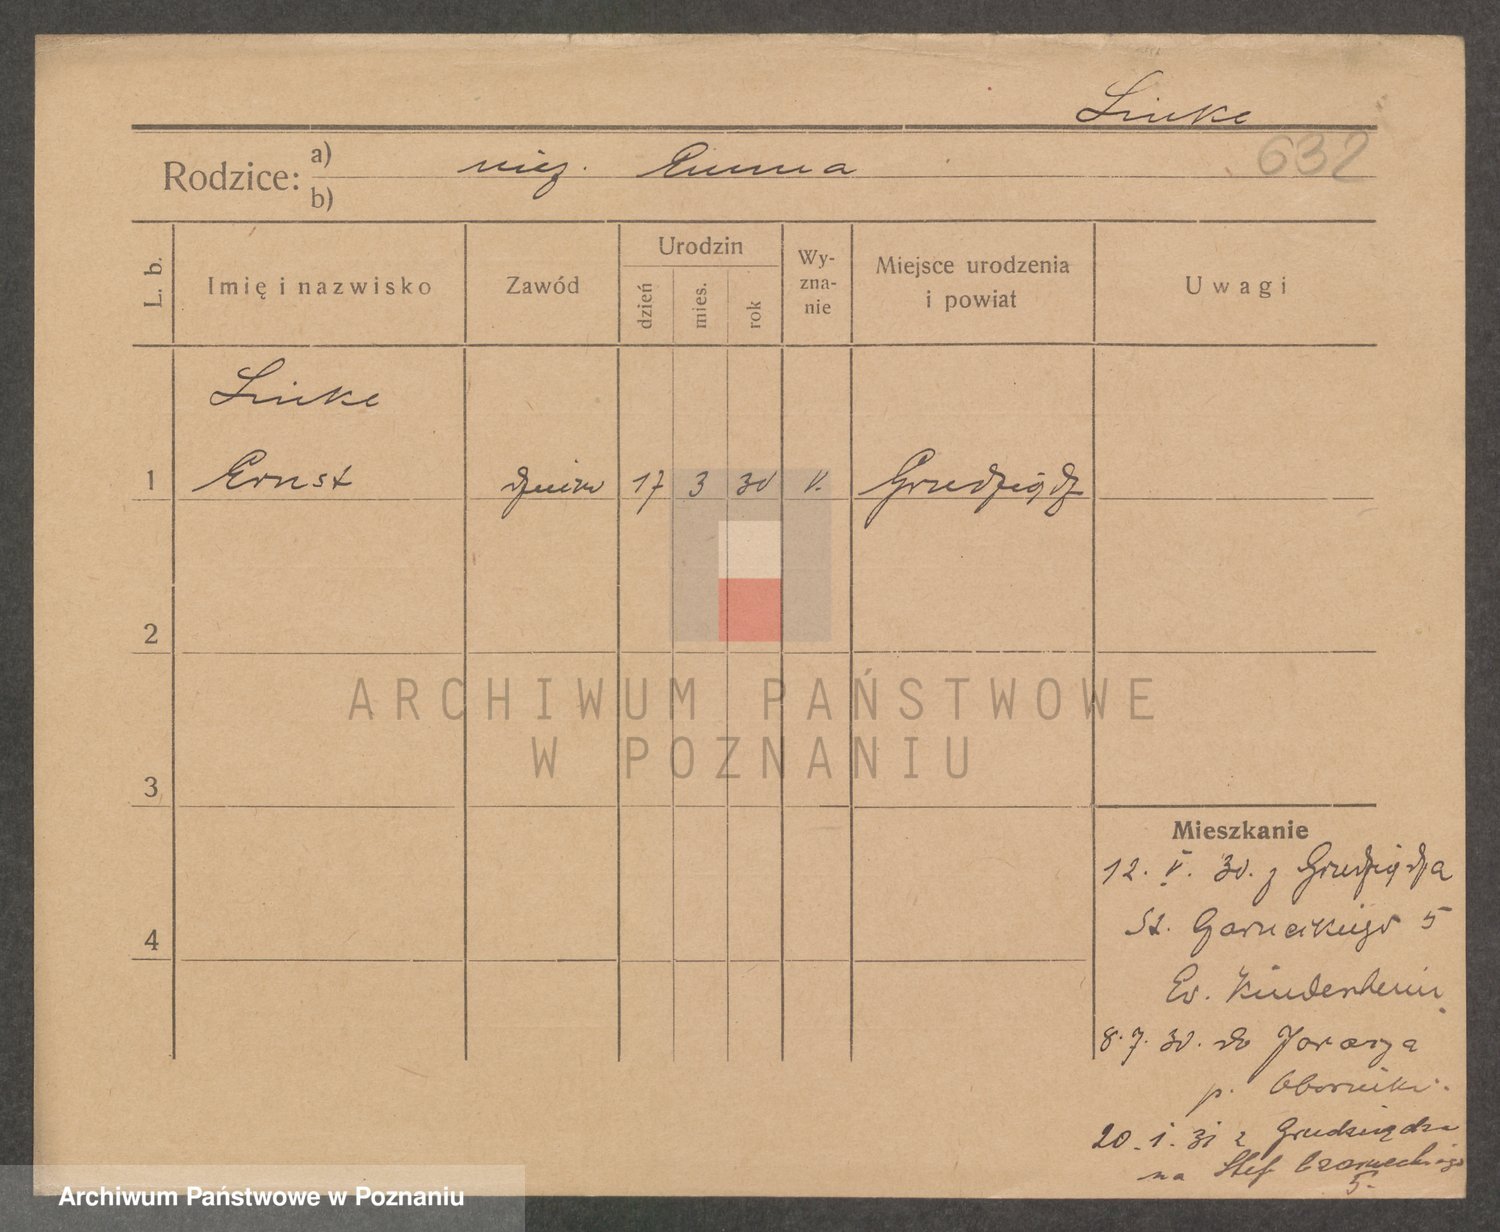 Linke
632
Rodzice: a) niez. Emma
b)
L. b.
Imię i nazwisko
Zawód
Urodzin
dzień
mies.
rok
Wy-
zna-
nie
Miejsce urodzenia
i powiat
Uwagi
Linke
1 Ernst 17 3 30 Grudziądz
2
3
4
Mieszkanie
12. V. 30. z Grudziądza
St. Czarneckiego 5
Ev. Kinderheim
8. 7. 30. do
p. Oborniki.
20. I. 31 z Grudziądza
na Stef. Czarneckiego
5.
ARCHIWUM PAŃSTWOWE
W POZNANIU
Archiwum Państwowe w Poznaniu